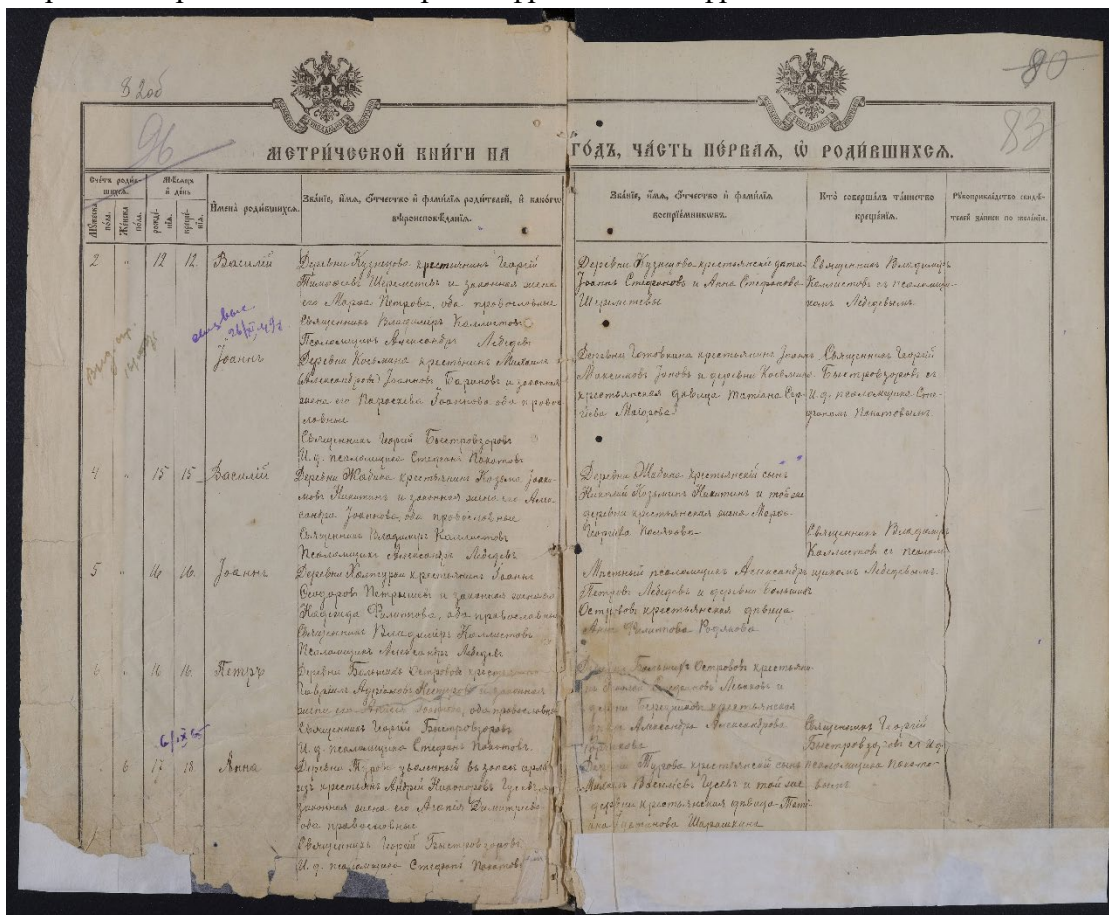 8 2об
96
80
83
МЕТРИ́ЧЕСКОЙ КНИ́ГИ НА ГО́ДЪ, ЧА́СТЬ ПЕ́РВАѦ, Ѡ҆ РОДИ́ВШИХСѦ.
Сче́тъ роди́вшихсѧ.
Му́жеска по́ла.
Же́нска по́ла.
Мѣ́сѧцъ и҆ де́нь
рожде́нїѧ.
креще́нїѧ.
И҆мена̀ роди́вшихсѧ.
Зва́нїе, и҆́мѧ, ѻ҆́тчество и҆ фами́лїѧ роди́телей, и҆ како́гѡ
вѣроисповѣ́данїѧ.
Зва́нїе, и҆́мѧ, ѻ҆́тчество и҆ фами́лїѧ
воспрїе́мникѡвъ.
Кто̀ соверша́лъ та́инство
креще́нїѧ.
Рꙋкоприкла́дство свидѣ́-
телей за́писи по жела́нїю.
2 " 12 12. Василій
Деревни Кузнецово крестьянинъ Георгій
Тимофеевъ Шереметевъ и законная жена
его Марѳа Петрова, оба православные
Священникъ Владиміръ Каллистовъ
Псаломщикъ Александръ Лебедевъ
Деревни Кузнецово крестьянскія дѣти
Іоаннъ Стефановъ и Анна Стефанова
Шереметевы
Священникъ Владиміръ
Каллистовъ съ псаломщи-
комъ Лебедевымъ.
Іоаннъ
крестьянинъ Михаилъ
(Александровъ) Іоанновъ Барановъ и законная
жена его Параскева Іоаннова оба право-
славные
Священникъ Георгій Быстровзоровъ
И. д. псаломщика Стефанъ Покотовъ
крестьянинъ Іоаннъ
Максимовъ Іоновъ и деревни
крестьянская дѣвица Татіана Сер-
гіева
Священникъ Георгій
Быстровзоровъ съ
И. д. псаломщика Сте-
фаномъ Покотовымъ.
4 " 15 15 Василій
Деревни Жабина крестьянинъ Козьма Іоаки-
мовъ Никитинъ и законная жена его Алек-
сандра Іоаннова, оба православные
Священникъ Владиміръ Каллистовъ
Псаломщикъ Александръ Лебедевъ
Деревни Жабина крестьянскій сынъ
Николай Козьминъ Никитинъ и той же
деревни крестьянская жена Марѳа
Георгіева
Священникъ Владиміръ
Каллистовъ съ псалом-
щикомъ Лебедевымъ.
5 " 16 16. Іоаннъ
крестьянинъ Іоаннъ
Ѳеодоровъ и законная жена его
Надежда Филиппова, оба православные
Священникъ Владиміръ Каллистовъ
Псаломщикъ Александръ Лебедевъ
Мѣстный псаломщикъ Александръ
Петровъ Лебедевъ и деревни Большихъ
Острововъ крестьянская дѣвица
Анна Филиппова Родіонова
6 " 16 16. Петръ
Деревни Большихъ Острововъ крестьянинъ
Гавріилъ
жена его оба православные
Священникъ Георгій Быстровзоровъ
И. д. псаломщика Стефанъ Покотовъ
Деревни Большихъ Острововъ крестьяни-
крестьянская
Александра Александрова
Священникъ Георгій
Быстровзоровъ съ И. д.
псаломщика
6 17 18 Анна
Деревни Турова уволенный въ запасъ арміи
изъ крестьянъ Андрей Гусевъ и
законная жена его Агапія Димитріева
оба православные
Священникъ Георгій Быстровзоровъ
И. д. псаломщика Стефанъ Покотовъ
Турова крестьянскій сынъ
Василіевъ Гусевъ и той же
деревни крестьянская дѣвица
Шарашкина